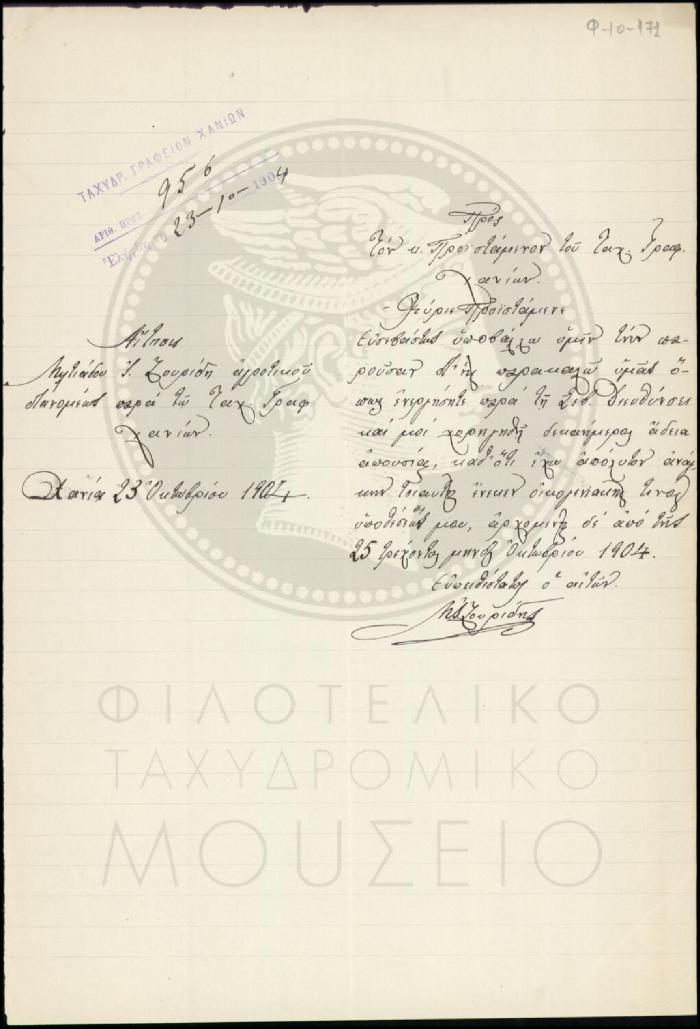 Φ-10-171
ΤΑΧΥΔΡ. ΓΡΑΦΕΙΟΝ ΧΑΝΙΩΝ
ΑΡΙΘ. ΠΡΩΤ. 956
Ἐλήφθη τῇ 23-10-1904
Πρὸς
Τὸν κ. Προϊστάμενον τοῦ Ταχ. Γραφ.
Χανίων.
Αἴτησις
Μιλτιάδου Ι. Ζουρίδη ἀγροτικοῦ
διανομέως παρὰ τῷ Ταχ. Γραφ.
Χανίων.
Χανία 23 Ὀκτωβρίου 1904.
Κύριε Προϊστάμενε
Εὐσεβάστως ὑποβάλλω ὑμῖν τὴν πα-
ροῦσαν δι' ἧς παρακαλῶ ὑμᾶς ὅ-
πως ἐνεργήσητε παρὰ τῇ Σεβ. Διευθύνσει
καὶ μοὶ χορηγηθῇ δεκαήμερος ἄδεια
ἀπουσίας, καθ' ὅτι ἔχω ἀπόλυτον ἀνάγ-
κην τοιαύτης ἕνεκεν οἰκογενειακῆς τινος
ὑποθέσεώς μου, ἀρχομένης δὲ ἀπὸ τῆς
25 τρέχοντος μηνὸς Ὀκτωβρίου 1904.
Εὐπειθέστατος ὁ αἰτῶν.
Ζουρίδης
ΦΙΛΟΤΕΛΙΚΟ
ΤΑΧΥΔΡΟΜΙΚΟ
ΜΟΥΣΕΙΟ